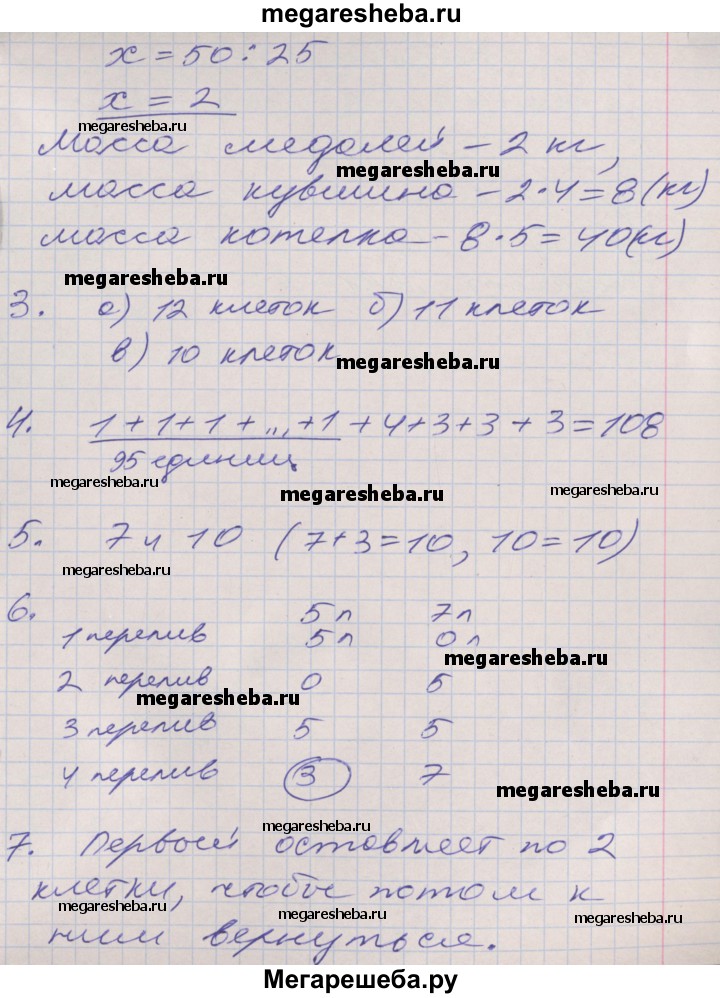 megaresheba.ru
x = 50 : 25
x = 2
megaresheba.ru
Масса медалей – 2 кг,
megaresheba.ru
масса кувшина – 2 · 4 = 8 (кг)
масса котелка – 8 · 5 = 40 (кг)
megaresheba.ru
3. а) 12 клеток б) 11 клеток
в) 10 клеток
megaresheba.ru
4. 1 + 1 + 1 + ... + 1 + 4 + 3 + 3 + 3 = 108
95 единиц
megaresheba.ru megaresheba.ru megaresheba.ru
5. 7 и 10 (7 + 3 = 10, 10 = 10)
megaresheba.ru
6. 5 л 7 л
1 перелив 5 л 0 л
megaresheba.ru
2 перелив 0 5
megaresheba.ru
3 перелив 5 5
4 перелив 3 7
megaresheba.ru
megaresheba.ru
7. Первый оставляет по 2
клетки, чтобы потом к
megaresheba.ru megaresheba.ru megaresheba.ru
ним вернуться.
Мегарешеба.ру